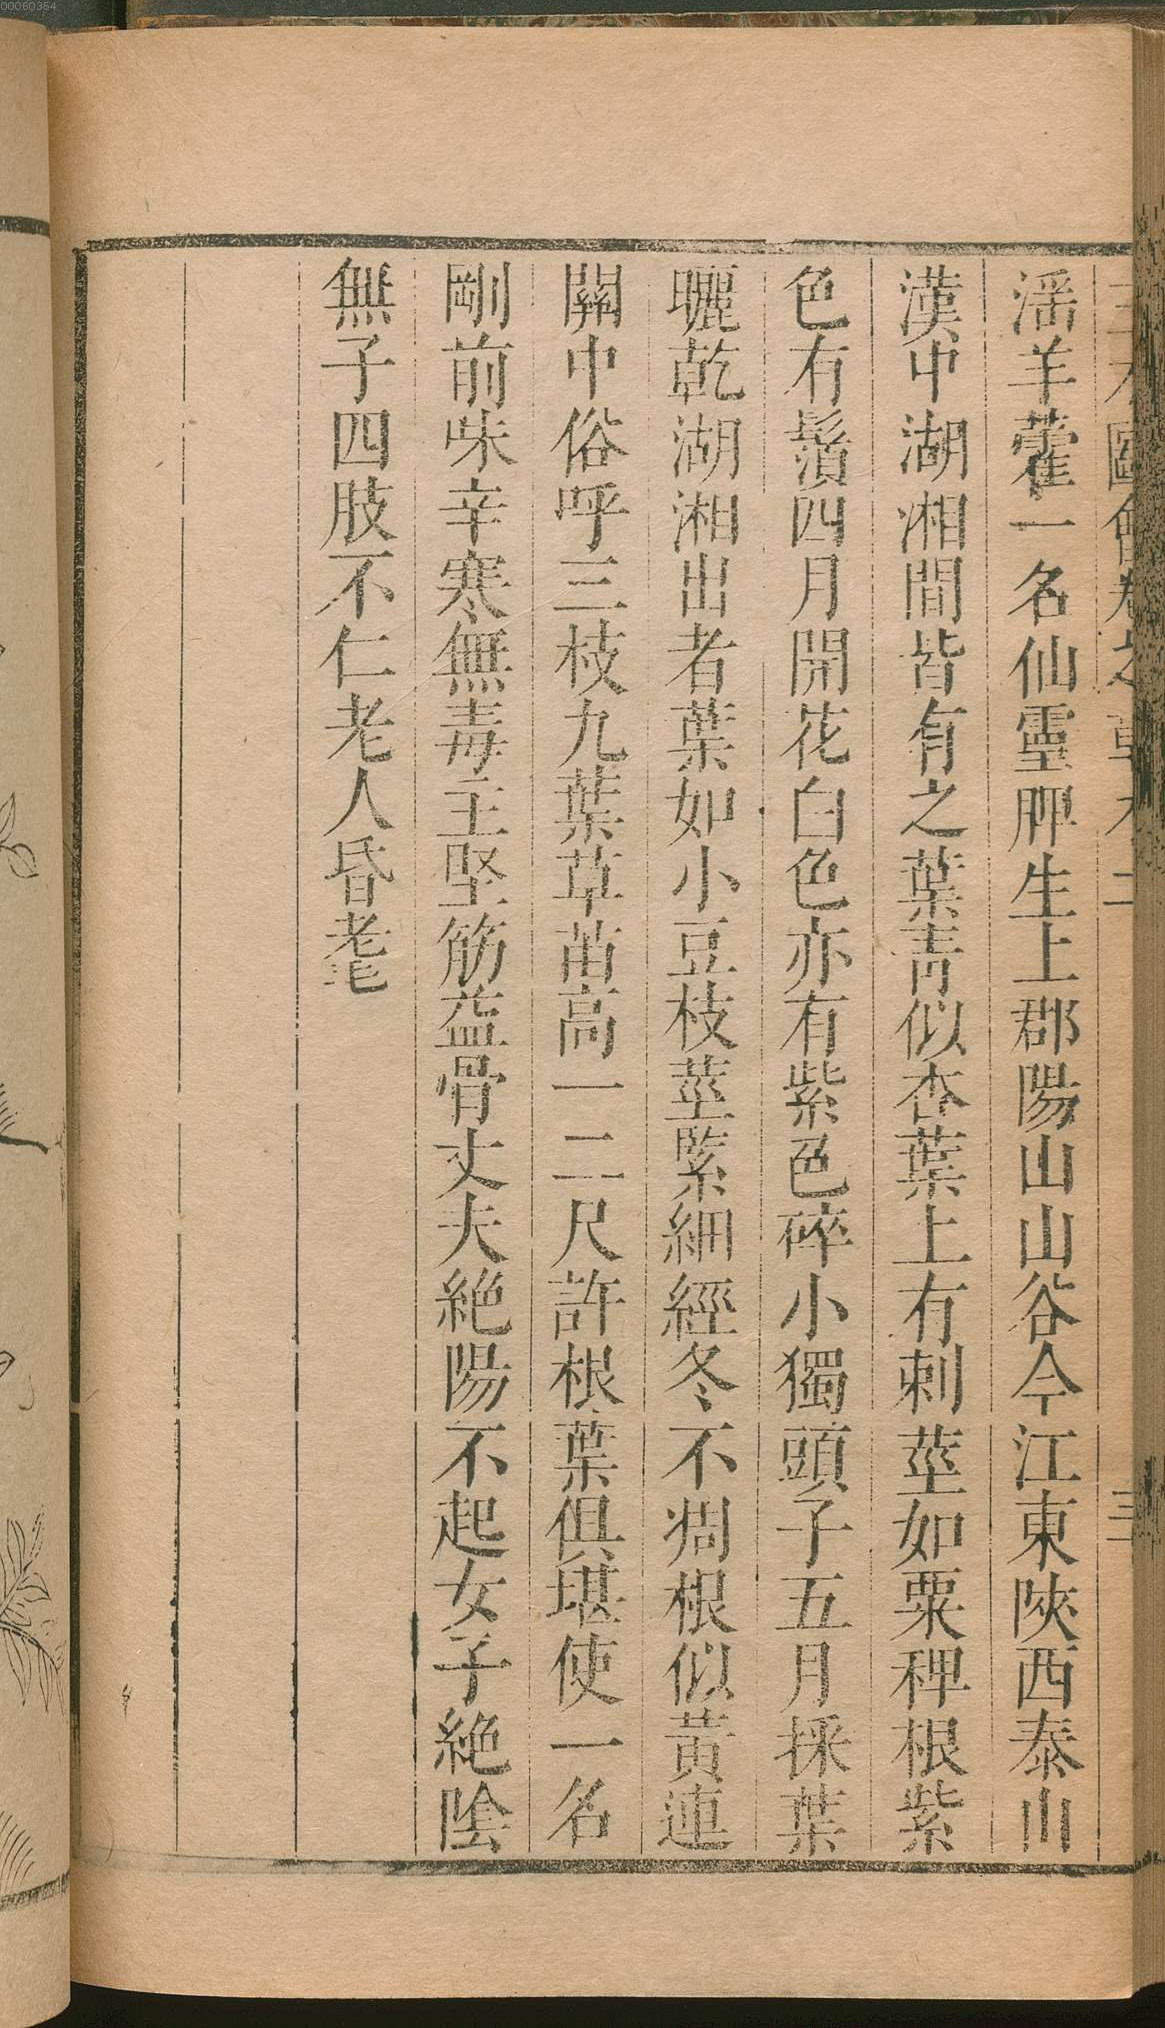 淫羊藿一名仙靈脾生上郡陽山山谷今江東陝西泰山
漢中湖湘間皆有之葉青似杏葉上有刺莖如粟稈根紫
色有鬚四月開花白色亦有紫色碎小獨頭子五月採葉
曬乾湖湘出者葉如小豆枝莖緊細經冬不凋根似黃連
關中俗呼三枝九葉草苗高一二尺許根葉俱堪使一名
剛前味辛寒無毒主堅筋益骨丈夫絶陽不起女子絶陰
無子四肢不仁老人昏耄
00060354